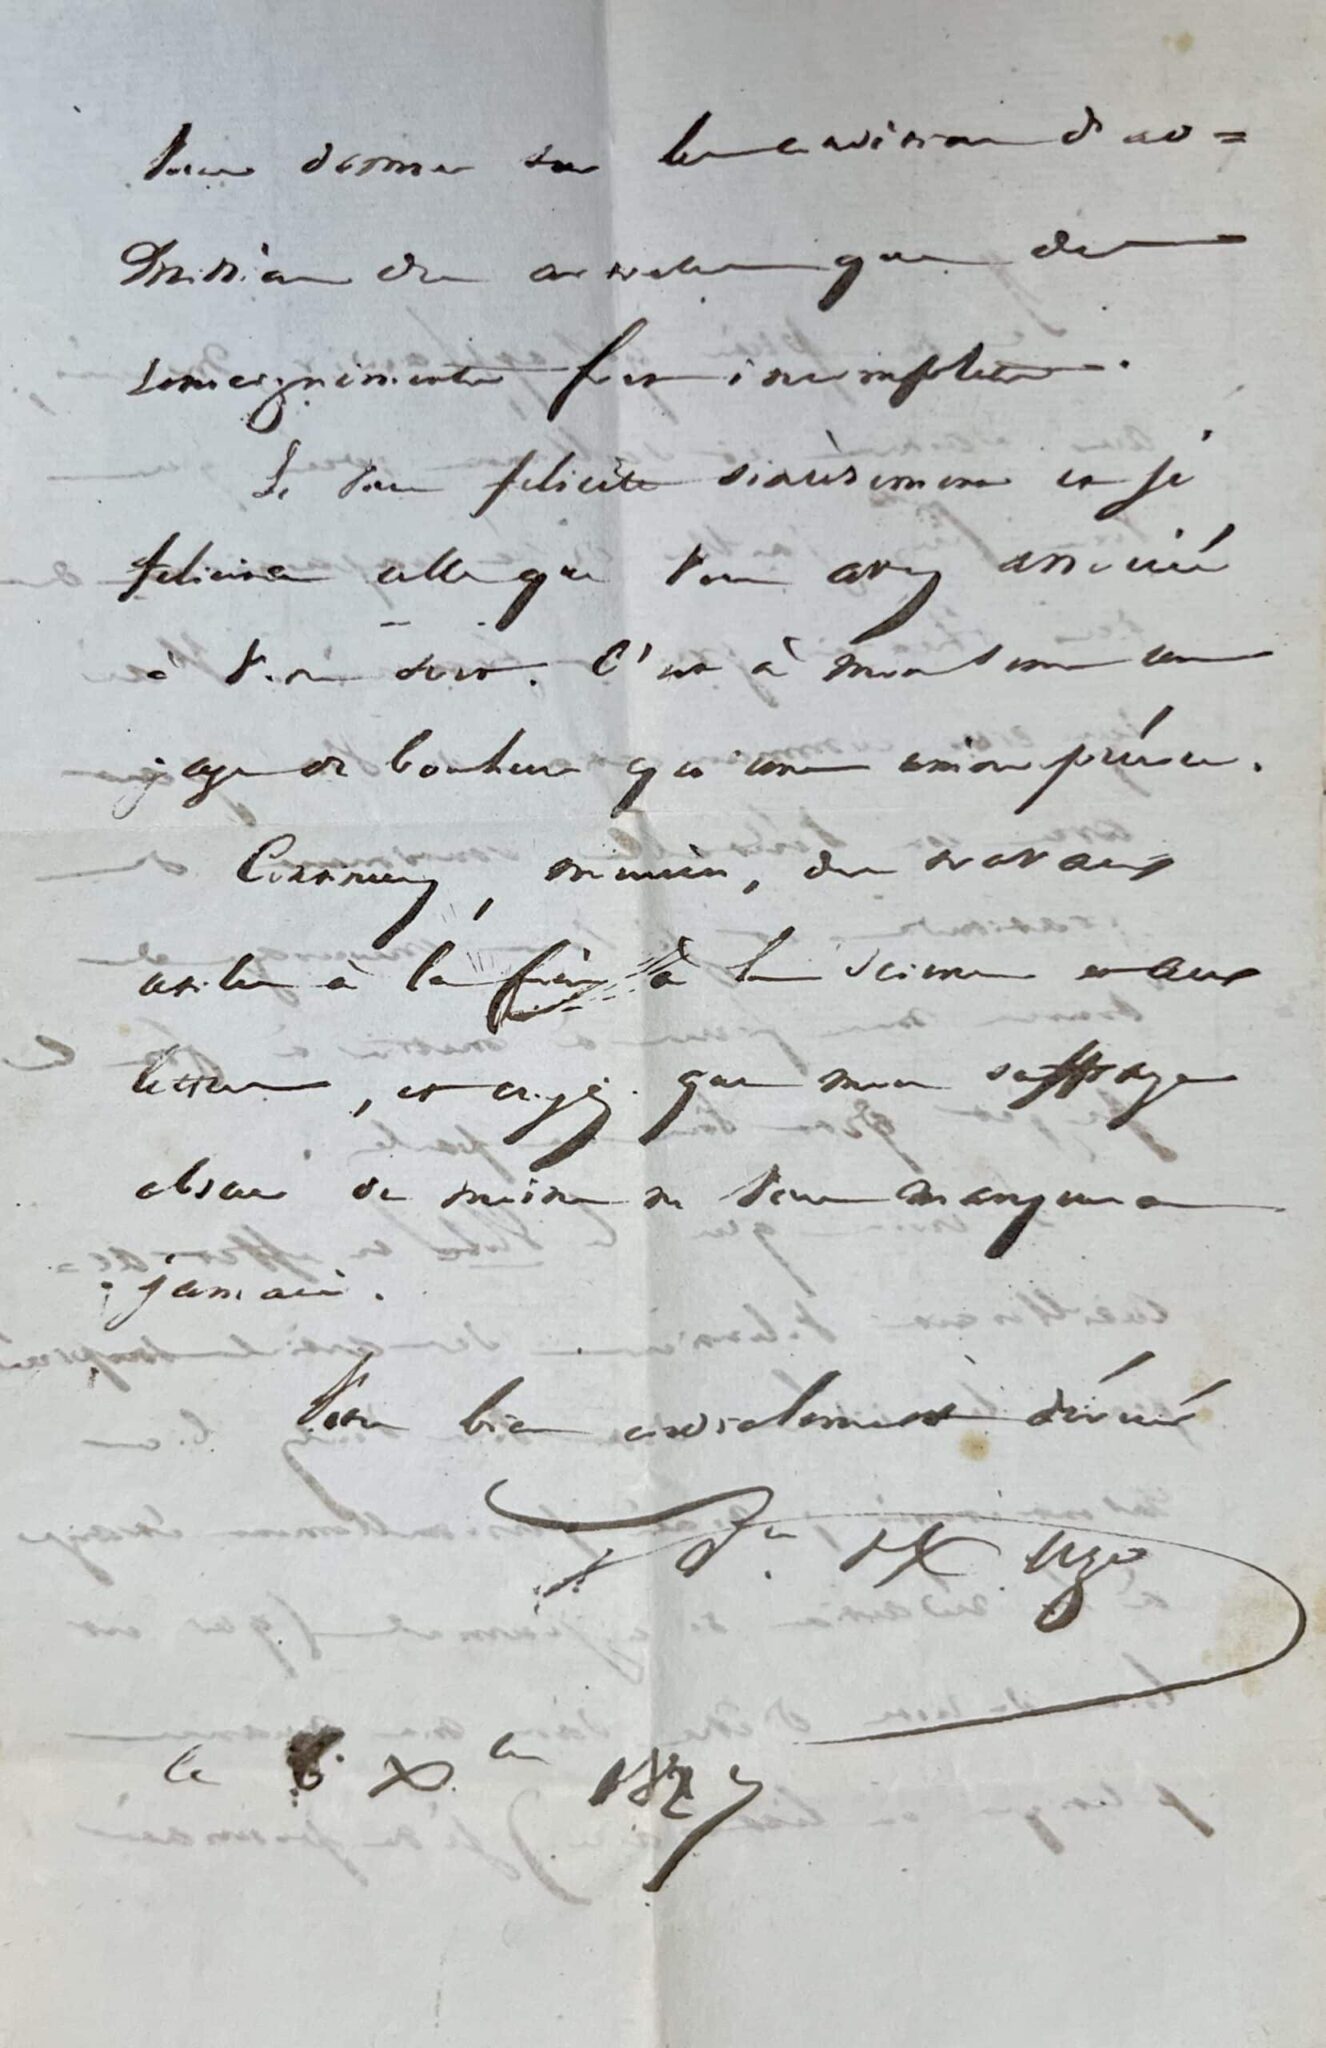 vous donner sur les conditions d'ad=
mission des articles que des
renseignements fort incomplets.
Je vous felicite sincèrement et je
felicite celle que vous avez associée
à votre sort. C'est à mon sens un
gage de bonheur qu'une union précoce.
Continuez, monsieur, des travaux
utiles à la fois à la science et aux
lettres, et croyez que mon suffrage
obscur du moins ne vous manquera
jamais.
Votre bien cordialement dévoué
le 6 Xbre 182